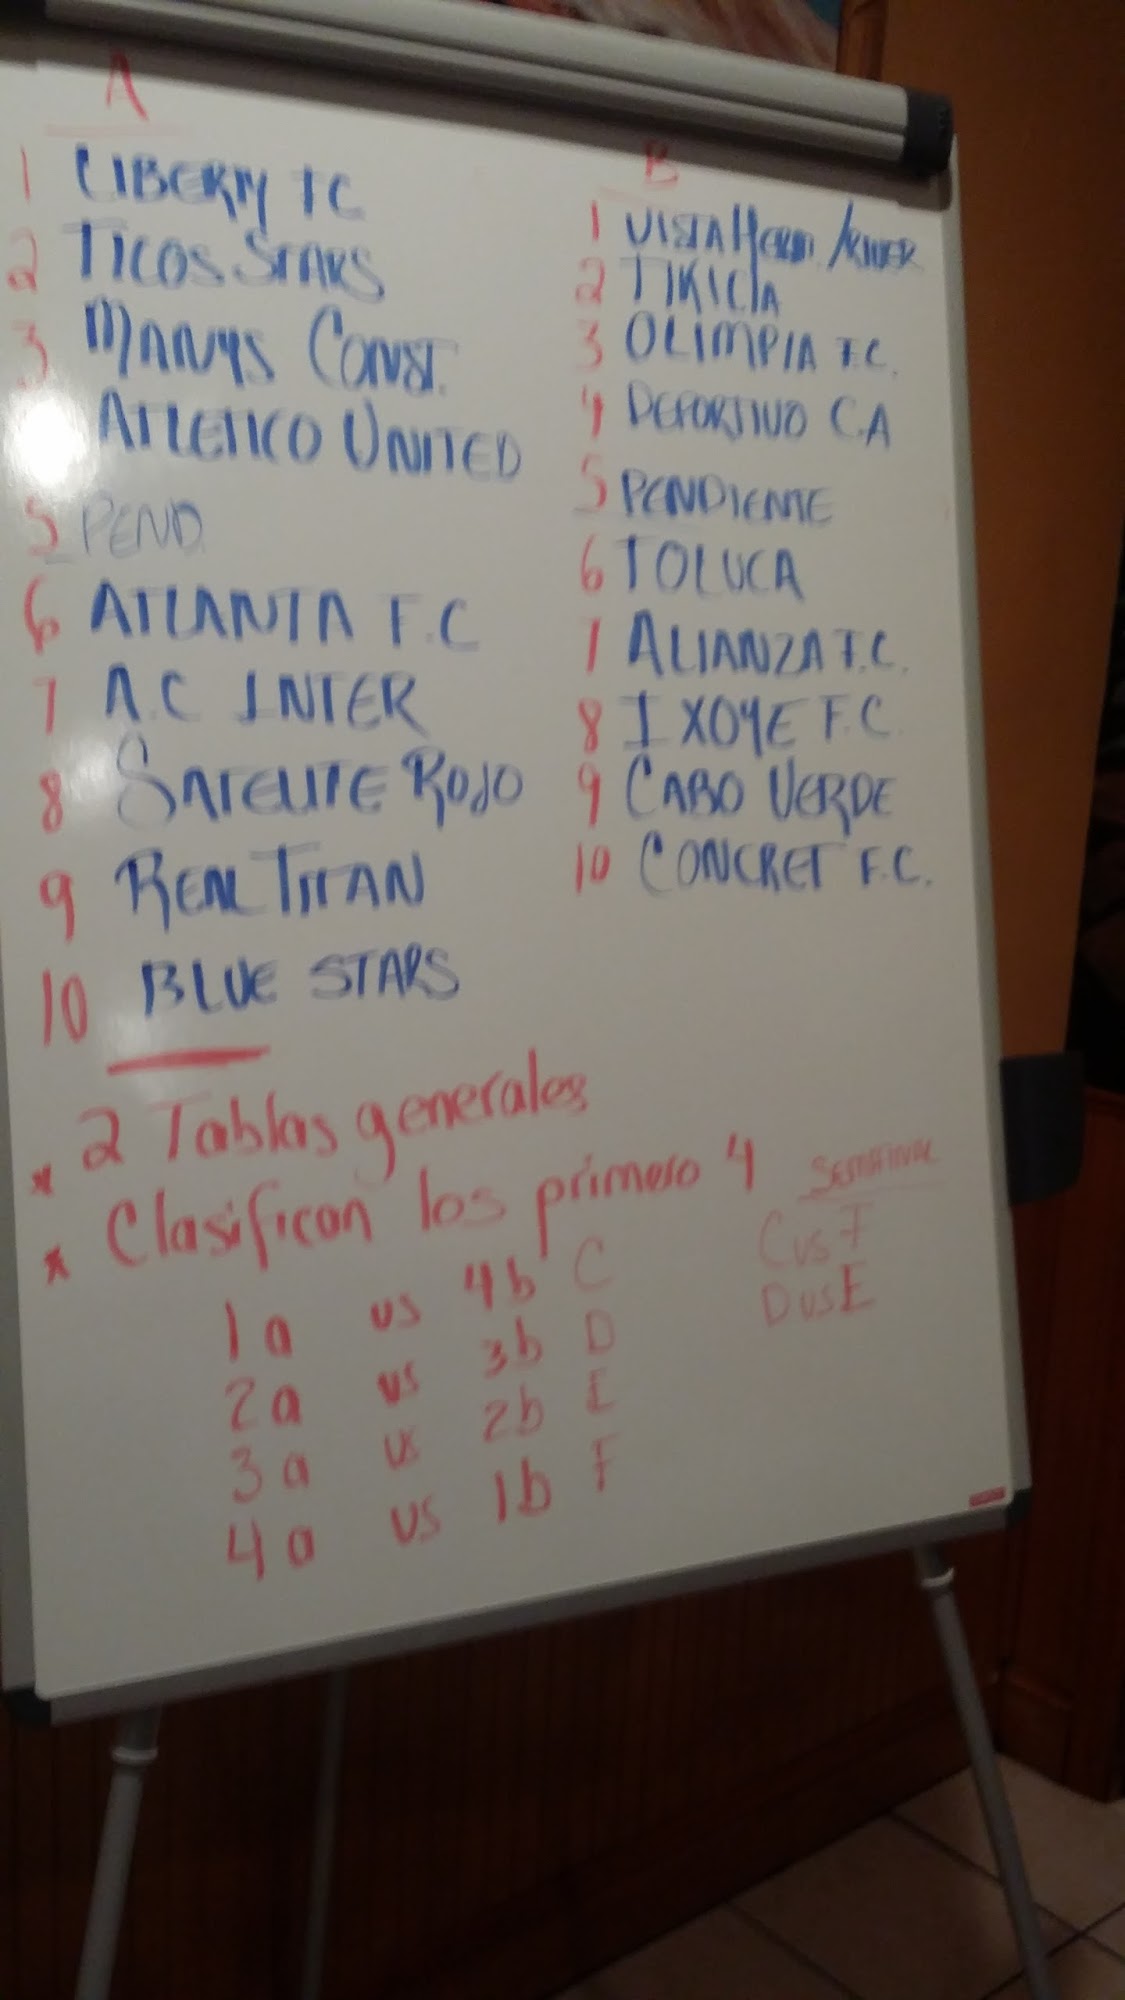 A
1 LIBERTY FC
2 TICOS STARS
3 MANYS CONST.
ATLETICO UNITED
5 PEND.
6 ATLANTA F.C
7 A.C INTER
8 SATELITE ROJO
9 REAL TITAN
10 BLUE STARS
B
1 VISTA HERM. /RIVER
2 TIKICIA
3 OLIMPIA F.C.
4 DEPORTIVO C.A
5 PENDIENTE
6 TOLUCA
7 ALIANZA F.C.
8 IXOYE F.C.
9 CABO VERDE
10 CONCRET F.C.
* 2 Tablas generales
* Clasifican los primero 4
1a vs 4b C
2a vs 3b D
3a vs 2b E
4a vs 1b F
SEMIFINAL
C vs F
D vs E